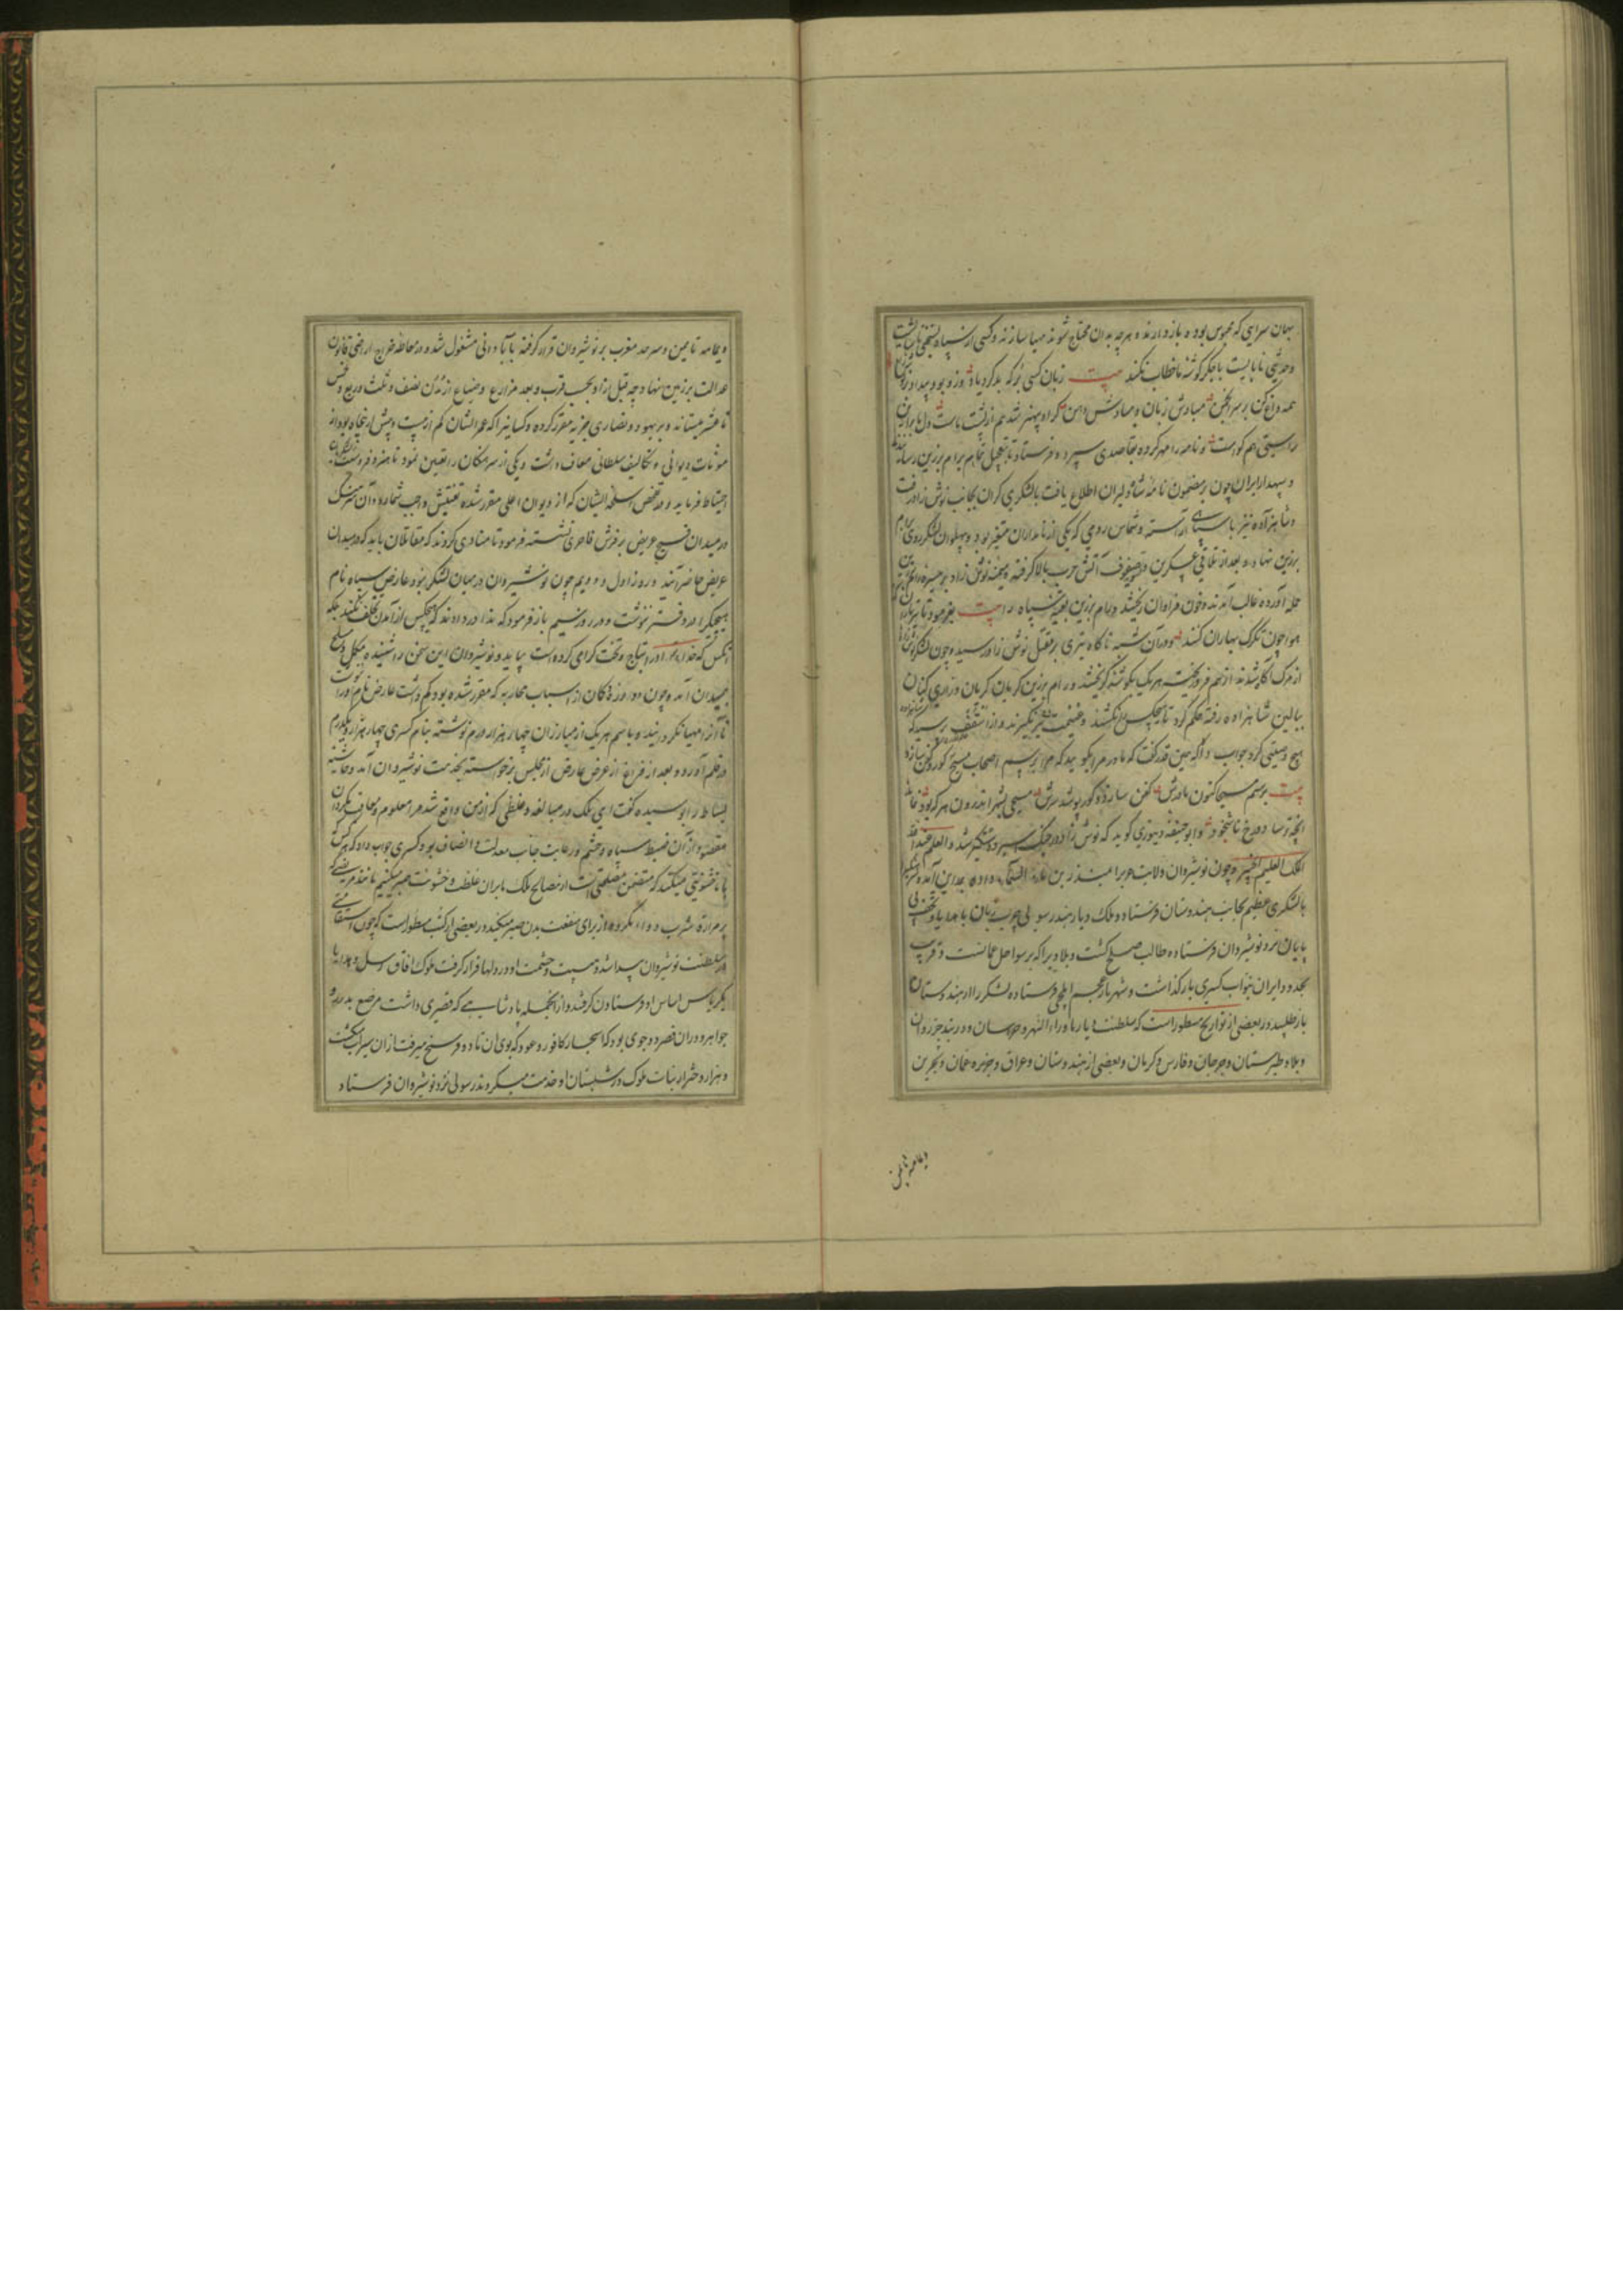 بهمان سرای که محبوس بوده باز دارند و هر چه بدان محتاج شوند مهیا سازند و کسی از سپاه
و حدیثی نابایست با جگرگوشه ما خطاب نکند بیت زبان کسی کو که بد کرد یاد وزو بود بیداد
همه داغ کن بر سر انجمن مبادش زبان و مبادش دهن
راستی هم کواست و نامه را مهر کرده بقاصدی سپرده فرستاد تا بتعجیل تمام برام برزین رساند
و سپهدار ایران چون بر مضمون نامه شاه دلیران اطلاع یافت با لشکری گران بجانب نوش زاد رفت
و شاهزاده نیز با سپاهی آراسته و شماس رومی که یکی از نامداران قیصر بود و پهلوان لشکر روی برام
برزین نهاد و بعد از تلاقی عسکرین و تسویه صفوف آتش حرب بالا گرفته میمنه نوش زاد بر میسره رام برزین
حمله آورده غالب آمدند و خون فراوان ریختند و رام برزین بقیه سپاه را بیت بفرمود تا تیرباران
هوا چون تگرگ بهاران کنند و در آن شب ناگاه تیری بر مقتل نوش زاد رسید و چون لشکر نوش زاد
از مرگ آگاه شدند از هم فرو ریخت هر یک بگوشه گریختند و رام برزین گریان گریان و زاری کنان
ببالین شاهزاده رفته حکم کرد تا هیچکس را نکشند و غنیمت نگیرند و از اسقف پرسید که
هیچ وصیتی کرد جواب داد که همین قدر گفت که مادر مرا بگویید که مرا برسم اصحاب مسیح گور و کفن سازد
بیت برسم مسیحا کنون مادرش کفن سازد و گور و پوشد سرش مسیحی بشهر اندرون هر که بود
و ابو حنیفه دینوری گوید که نوش زاد در جنگ اسیر و دستگیر شد و العلم عند الله
الملک العلیم الخبیر و چون نوشیروان ولایت حیره را بمنذر بن ماء السماء داده بمداین آمد
با لشکری عظیم بجانب هندوستان فرستاد و ملک دیار هند رسولی چرب زبان با هدایا و تحف
پایان نزد نوشیروان فرستاده طالب صلح گشت و بلادیرا که بر سواحل عمانست و قریب
بحدود ایران بنواب کسری باز گذاشت و شهریار عجم ایلچی فرستاده لشکر را از هندوستان
باز طلبید و در بعضی از تواریخ مسطور است که سلطنت دیار ماوراء النهر و خراسان و دربند خزروان
و بلاد طبرستان و جرجان و فارس و کرمان و بعضی از هندوستان و عراق و جزیره عمان و بحرین
و یمامه تا یمن
و یمامه تا یمن و سرحد مغرب بر نوشیروان قرار گرفته بآبادانی مشغول شده و در معامله خراج اراضی قانون
عدالت بر زمین نهاد و چه قبل از او بحسب قرب و بعد مزارع و ضیاع از مدن نصف و ثلث و ربع و خمس
تا عشر میستانند و بر یهود و نصاری جزیه مقرر کرده و کسانیرا که عمر ایشان کم از بیست و بیش از پنجاه بود از
مونات دیوانی و تکالیف سلطانی معاف داشت و یکی از سرهنگان را تعین نمود تا هنر و فروسیت
احتیاط فرماید و در تفحص اسلحه ایشان که از دیوان اعلی مقرر شده تفتیش واجب شمارد و آن سرهنگ
در میدان فسیح عریض بر فرش فاخری نشسته فرمود تا منادی کردند که مقاتلان باید که در میدان
عریض حاضر آیند و روز اول و دویم چون نوشیروان در میان لشکر نبود عارض سپاه نام
هیچیکرا در دفتر ننوشت و در روز سیم باز فرمود که ندا در دادند که هیچکس از آمدن تخلف نکند بلکه
آنکس که خدا او را بتاج و تخت گرامی کرده است بیاید و نوشیروان این سخن را شنیده مکمل و مسلح
بمیدان آمد و چون دو از اسباب محاربه که مقرر شده بود کم داشت عارض نام او را
تا آنرا مهیا نگردانیده و باسم هر یک از مبارزان چهار هزار درم نوشته بنام کسری چهار هزار و یکدرم
در قلم آورد و بعد از فراغ از عرض عارض از مجلس برخواسته بخدمت نوشیروان آمد و حاشیه
بساط را بوسیده گفت ای ملک در مبالغه و غلظی که از من واقع شد مرا معلوم و معاف گردان
مقصود از آن ضبط سپاه و حشم و رعایت جانب معدلت و انصاف بود و کسری جواب داد که هر کس
با ما خشونتی میکند که متضمن مصلحتی است از مصالح ملک ما بر آن غلظت و خشونت صبر میکنیم مانند مریضی که
بر مرارت شرب دواء مکروه از برای منفعت بدن صبر میکند و در بعضی از کتب مسطور است که چون استقامتی
در سلطنت نوشیروان پیدا شد و هیبت و حشمت او در دلها قرار گرفت ملوک آفاق رسل و هدایا
بکریاس اساس او فرستادن گرفتند و از آنجمله پادشاهی که قصری داشت مرصع بدرر و
جواهر و در آن قصر دو جوی بود که اشجار کافور و عود که بوی آن تا دو فرسنخ میرفت از آن سیراب میگشت
و هزار دختر از بنات ملوک در شبستان او خدمت میکردند رسولی نزد نوشیروان فرستاد